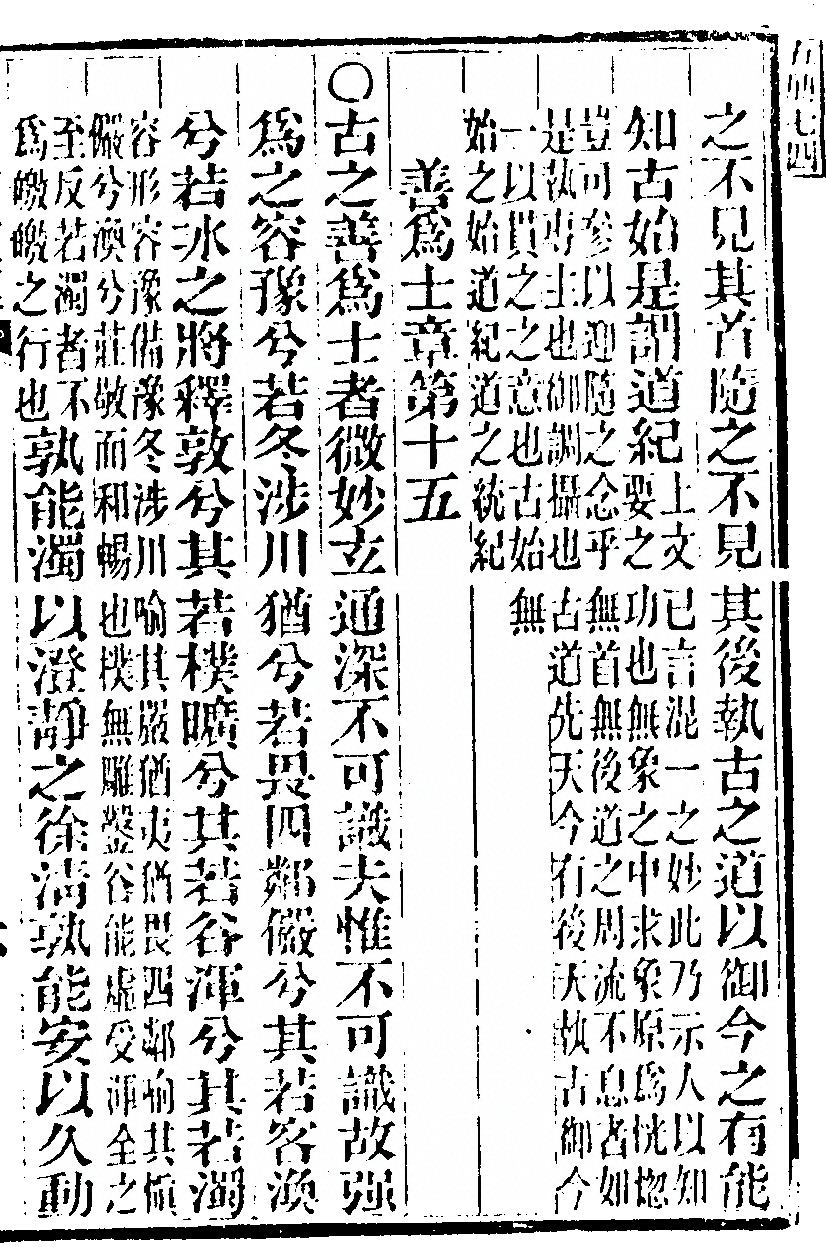 之不見其首隨之不見其後執古之道以御今之有能
知古始是謂道紀
上文已言混一之妙此乃示人以知
要之功也無象之中求象原爲恍惚
豈可參以迎隨之念乎無首無後道之周流不息者如
是執專主也御調攝也古道先天今有後天執古御今
一以貫之之意也古始無
始之始道紀道之統紀
善爲士章第十五
○古之善爲士者微妙玄通深不可識夫惟不可識故强
爲之容豫兮若冬涉川猶兮若畏四鄰儼兮其若客渙
兮若冰之將釋敦兮其若樸曠兮其若谷渾兮其若濁
容形容豫備豫冬涉川喻其嚴猶夷猶畏四鄰喻其慎
儼兮渙兮莊敬而和暢也樸無雕鑿谷能虛受渾全之
至反若濁者不
爲皦皦之行也
孰能濁以澄靜之徐清孰能安以久動